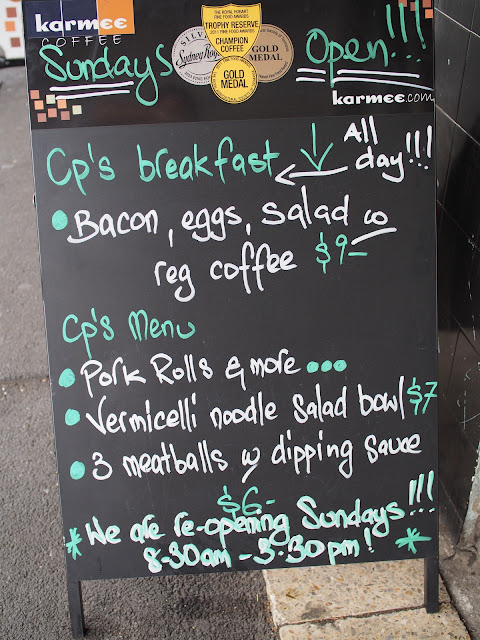 karmee
COFFEE
THE ROYAL HOBART
FINE FOOD AWARDS
TROPHY RESERVE
2011 FINE FOOD AWARDS
CHAMPION
COFFEE
GOLD
MEDAL
SILVER
Sydney Royal
GOLD
MEDAL
Sundays Open!!!
karmee.com
Cp's breakfast
All
day!!!
Bacon, eggs, salad w
reg coffee $9-
Cp's Menu
Pork Rolls & more ...
Vermicelli noodle salad bowl $7
3 meatballs w dipping sauce
$6-
* We are re-opening Sundays!!!
8-30am - 3.30pm! *